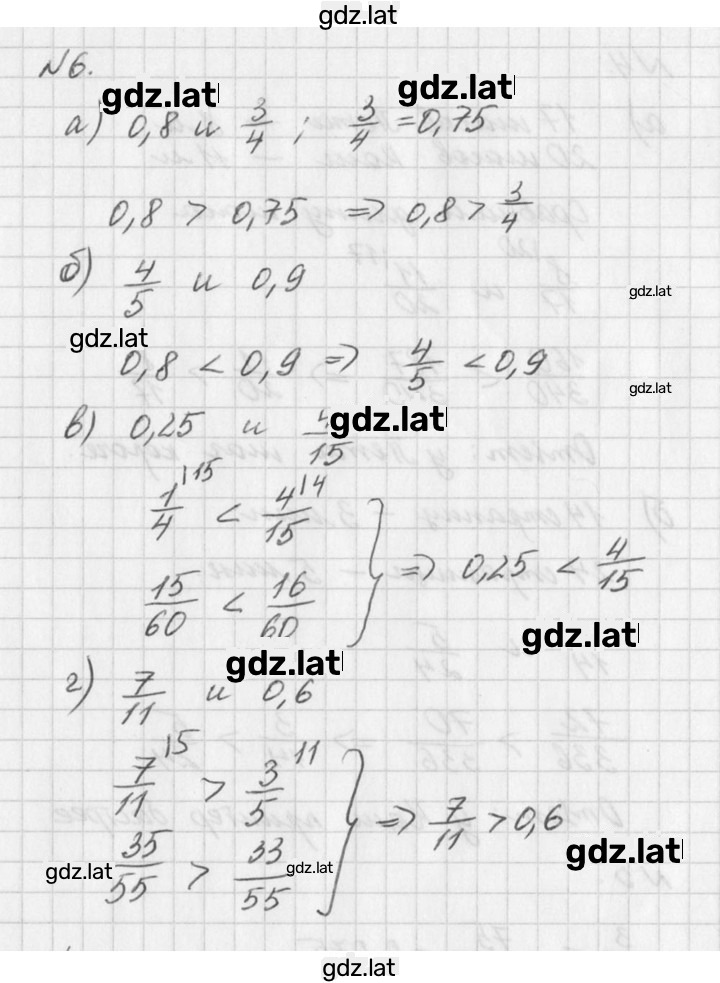 gdz.lat
№6.
gdz.lat gdz.lat
а) 0,8 и 3/4 ; 3/4 = 0,75
0,8 > 0,75 => 0,8 > 3/4
б) 4/5 и 0,9
gdz.lat
gdz.lat
0,8 < 0,9 => 4/5 < 0,9
gdz.lat
в) 0,25 и 4/15
gdz.lat
1/4 |15 < 4/15 |4
15/60 < 16/60 } => 0,25 < 4/15
gdz.lat
gdz.lat
г) 7/11 и 0,6
7/11 |5 > 3/5 |11
35/55 > 33/55 } => 7/11 > 0,6
gdz.lat
gdz.lat gdz.lat
gdz.lat